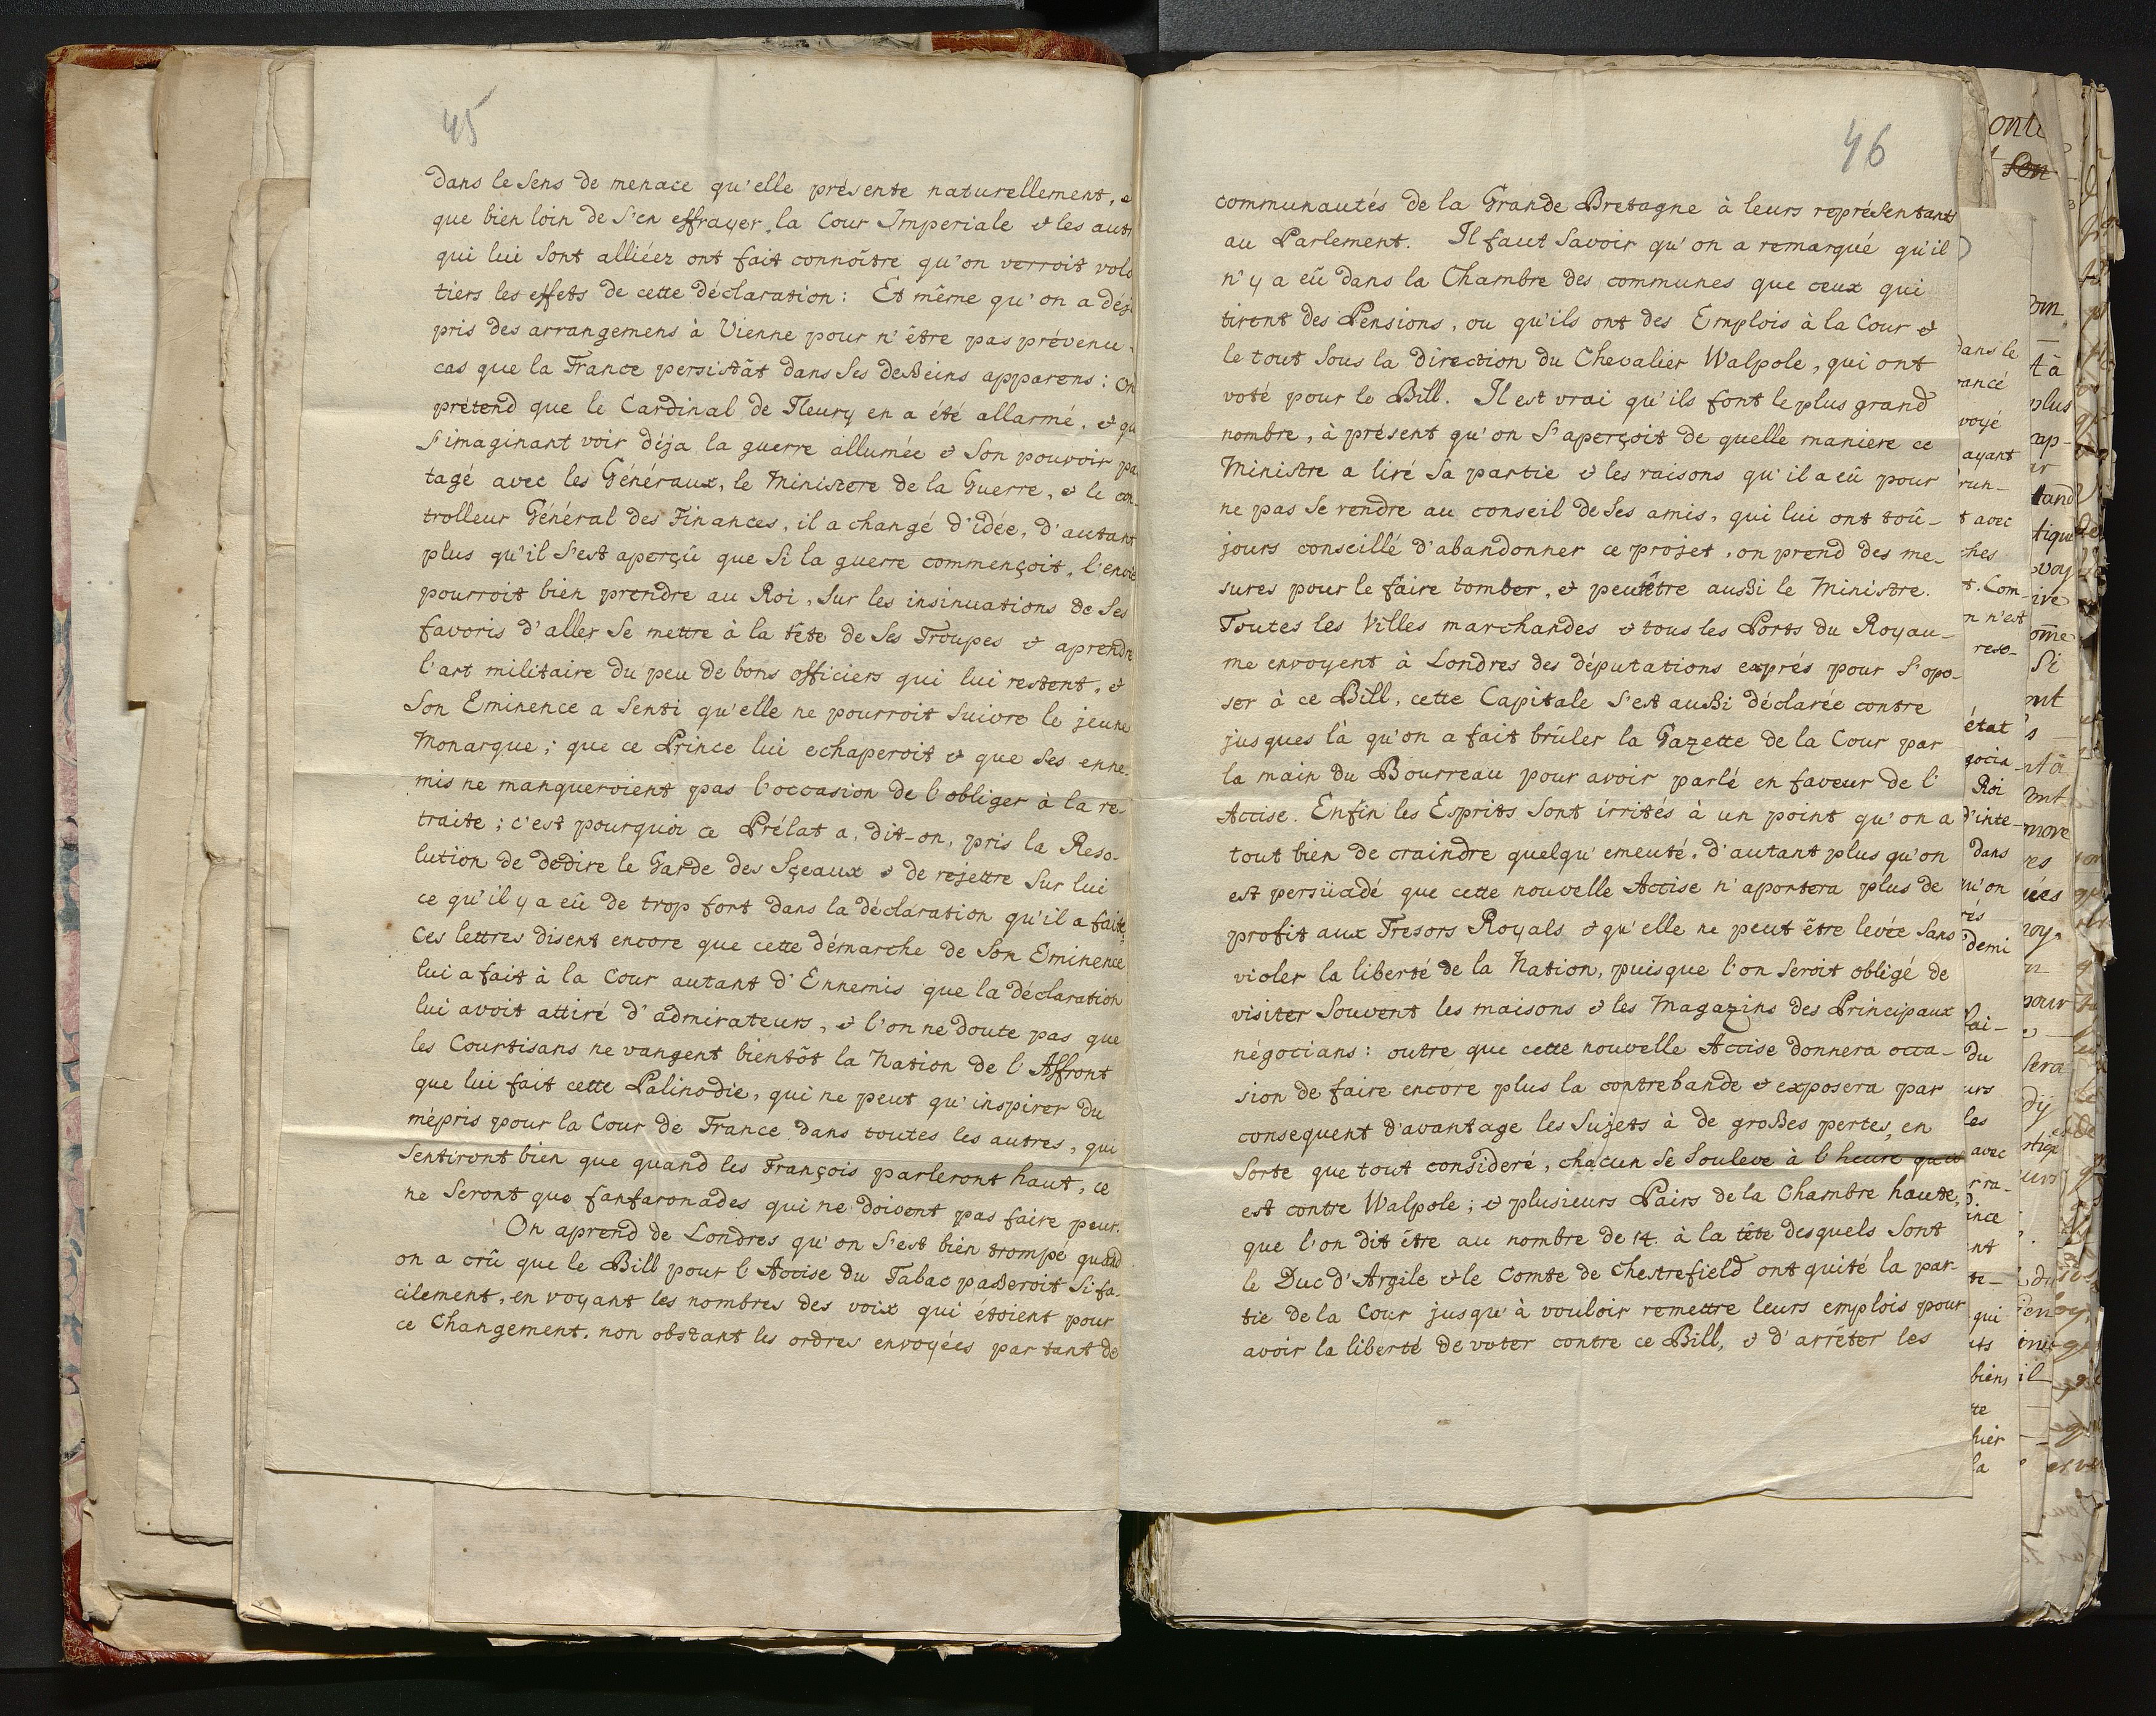 45
dans le sens de menace qu'elle présente naturellement, e
que bien loin de s'en effrayer, la Cour Imperiale & les autr
qui lui sont alliéez ont fait connoître qu'on verroit volo
tiers les effets de cette déclaration: Et même qu'on a déja
pris des arrangemens à Vienne pour n'être pas prévenu
cas que la France persistât dans ses desseins apparens: On
prétend que le Cardinal de Fleury en a été allarmé, & qu
s'imaginant voir déja la guerre allumée & son pouvoir pa
tagé avec les Généraux, le Ministere de la Guerre, & le con-
trolleur Général des Finances, il a changé d'idée, d'autant
plus qu'il s'est aperçû que si la guerre commençoit, l'envie
pourroit bien prendre au Roi, sur les insinuations de ses
favoris d'aller se mettre à la tête de ses Troupes & aprendre
l'art militaire du peu de bons officiers qui lui restent, &
Son Eminence a senti qu'elle ne pourroit suivre le jeune
Monarque; que ce Prince lui echaperoit & que ses enne-
mis ne manqueroient pas l'occasion de l'obliger à la re-
traite; c'est pourquoi ce Prélat a, dit-on, pris la Reso-
lution de dedire le Garde des Sçeaux & de rejettre sur lui
ce qu'il y a eû de trop fort dans la déclaration qu'il a faite,
Ces lettres disent encore que cette démarche de Son Eminence
lui a fait à la Cour autant d'Ennemis que la déclaration
lui avoit attiré d'admirateurs, & l'on ne doute pas que
les Courtisans ne vangent bientôt la Nation de l'Affront
que lui fait cette Palinodie, qui ne peut qu'inspirer du
mépris pour la Cour de France dans toutes les autres, qui
sentiront bien que quand les François parleront haut, ce
ne seront que fanfaronades qui ne doivent pas faire peur.
On aprend de Londres qu'on s'est bien trompé quand
on a crû que le Bill pour l'Accise du Tabac passeroit si fa-
cilement, en voyant les nombres des voix qui étoient pour
ce Changement, non obstant les ordres envoyées par tant de
46
communautés de la Grande Bretagne à leurs représentants
au Parlement. Il faut savoir qu'on a remarqué qu'il
n'y a eû dans la Chambre des communes que ceux qui
tirent des Pensions, ou qu'ils ont des Emplois à la Cour &
le tout sous la direction du Chevalier Walpole, qui ont
voté pour le Bill. Il est vrai qu'ils font le plus grand
nombre, à présent qu'on s'aperçoit de quelle maniere ce
Ministre a liré sa partie & les raisons qu'il a eû pour
ne pas se rendre au conseil de ses amis, qui lui ont toû-
jours conseillé d'abandonner ce projet, on prend des me-
sures pour le faire tomber, & peutêtre aussi le Ministre.
Toutes les Villes marchandes & tous les Ports du Royau-
me envoyent à Londres des députations exprés pour s'opo-
ser à ce Bill, cette Capitale s'est aussi déclarée contre
jusques là qu'on a fait brûler la Gazette de la Cour par
la main du Bourreau pour avoir parlé en faveur de l'
Accise. Enfin les Esprits sont irrités à un point qu'on a
tout bien de craindre quelqu'emeuté, d'autant plus qu'on
est persüadé que cette nouvelle Accise n'aportera plus de
profit aux Tresors Royals & qu'elle ne peut être levée sans
violer la liberté de la Nation, puisque l'on seroit obligé de
visiter souvent les maisons & les Magazins des Principaux
négocians: outre que cette nouvelle Accise donnera occa-
sion de faire encore plus la contrebande & exposera par
consequent d'avantage les sujets à de grosses pertes, en
sorte que tout consideré, chacun se souleve à l'heure qu'il
est contre Walpole; & plusieurs Pairs de la Chambre haute,
que l'on dit être au nombre de 14. à la tête desquels sont
le Duc d'Argile & le Comte de Chestrefield ont quité la par-
tie de la Cour jusqu'à vouloir remettre leurs emplois pour
avoir la liberté de voter contre ce Bill, & d'arrêter les
dans le
ayant
t avec
t. Com-
n n'est
reso-
état
gocia-
Roi
d'inte-
dans
qu'on
demi
du
les
avec
qui
biens
hier
la